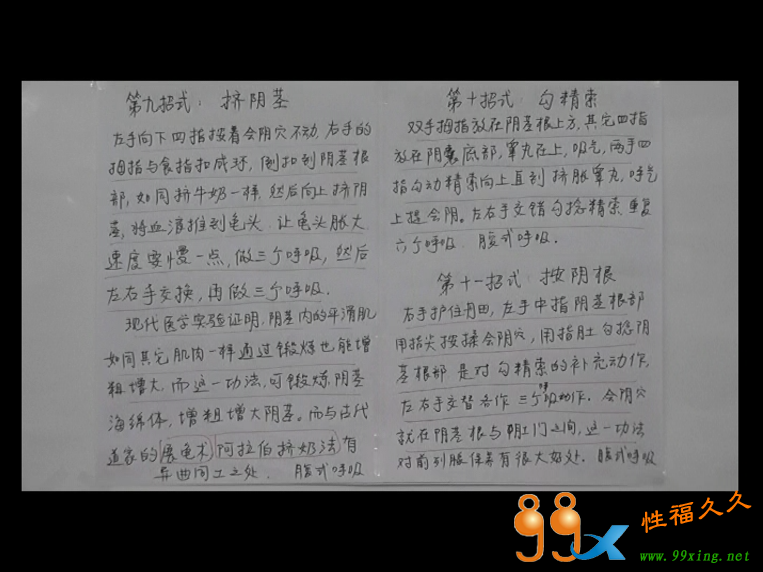 第九招式：挤阴茎
左手向下四指按着会阴穴不动，右手的
拇指与食指扣成环，倒扣到阴茎根
部，如同挤牛奶一样，然后向上挤阴
茎，将血液推到龟头，让龟头胀大，
速度要慢一点，做三个呼吸，然后
左右手交换，再做三个呼吸．
现代医学实验证明，阴茎内的平滑肌
如同其它肌肉一样通过锻炼也能增
粗增大，而这一功法，可锻炼阴茎
海绵体，增粗增大阴茎。而与古代
道家的展龟术阿拉伯挤奶法有
异曲同工之处． 腹式呼吸
第十招式：勾精索
双手拇指放在阴茎根上方，其它四指
放在阴囊底部，睾丸在上，吸气，两手四
指勾动精索向上直到挤胀睾丸，呼气
上提会阴。左右手交错勾捻精索，重复
六个呼吸． 腹式呼吸．
第十一招式：按阴根
右手护住丹田，左手中指阴茎根部
用指尖按揉会阴穴，用指肚勾捻阴
茎根部 是对勾精索的补充动作，
左右手交替各作三个动作． 会阴穴
就在阴茎根与肛门之间，这一功法
对前列腺保养有很大好处． 腹式呼吸
99x 性福久久
www.99xing.net